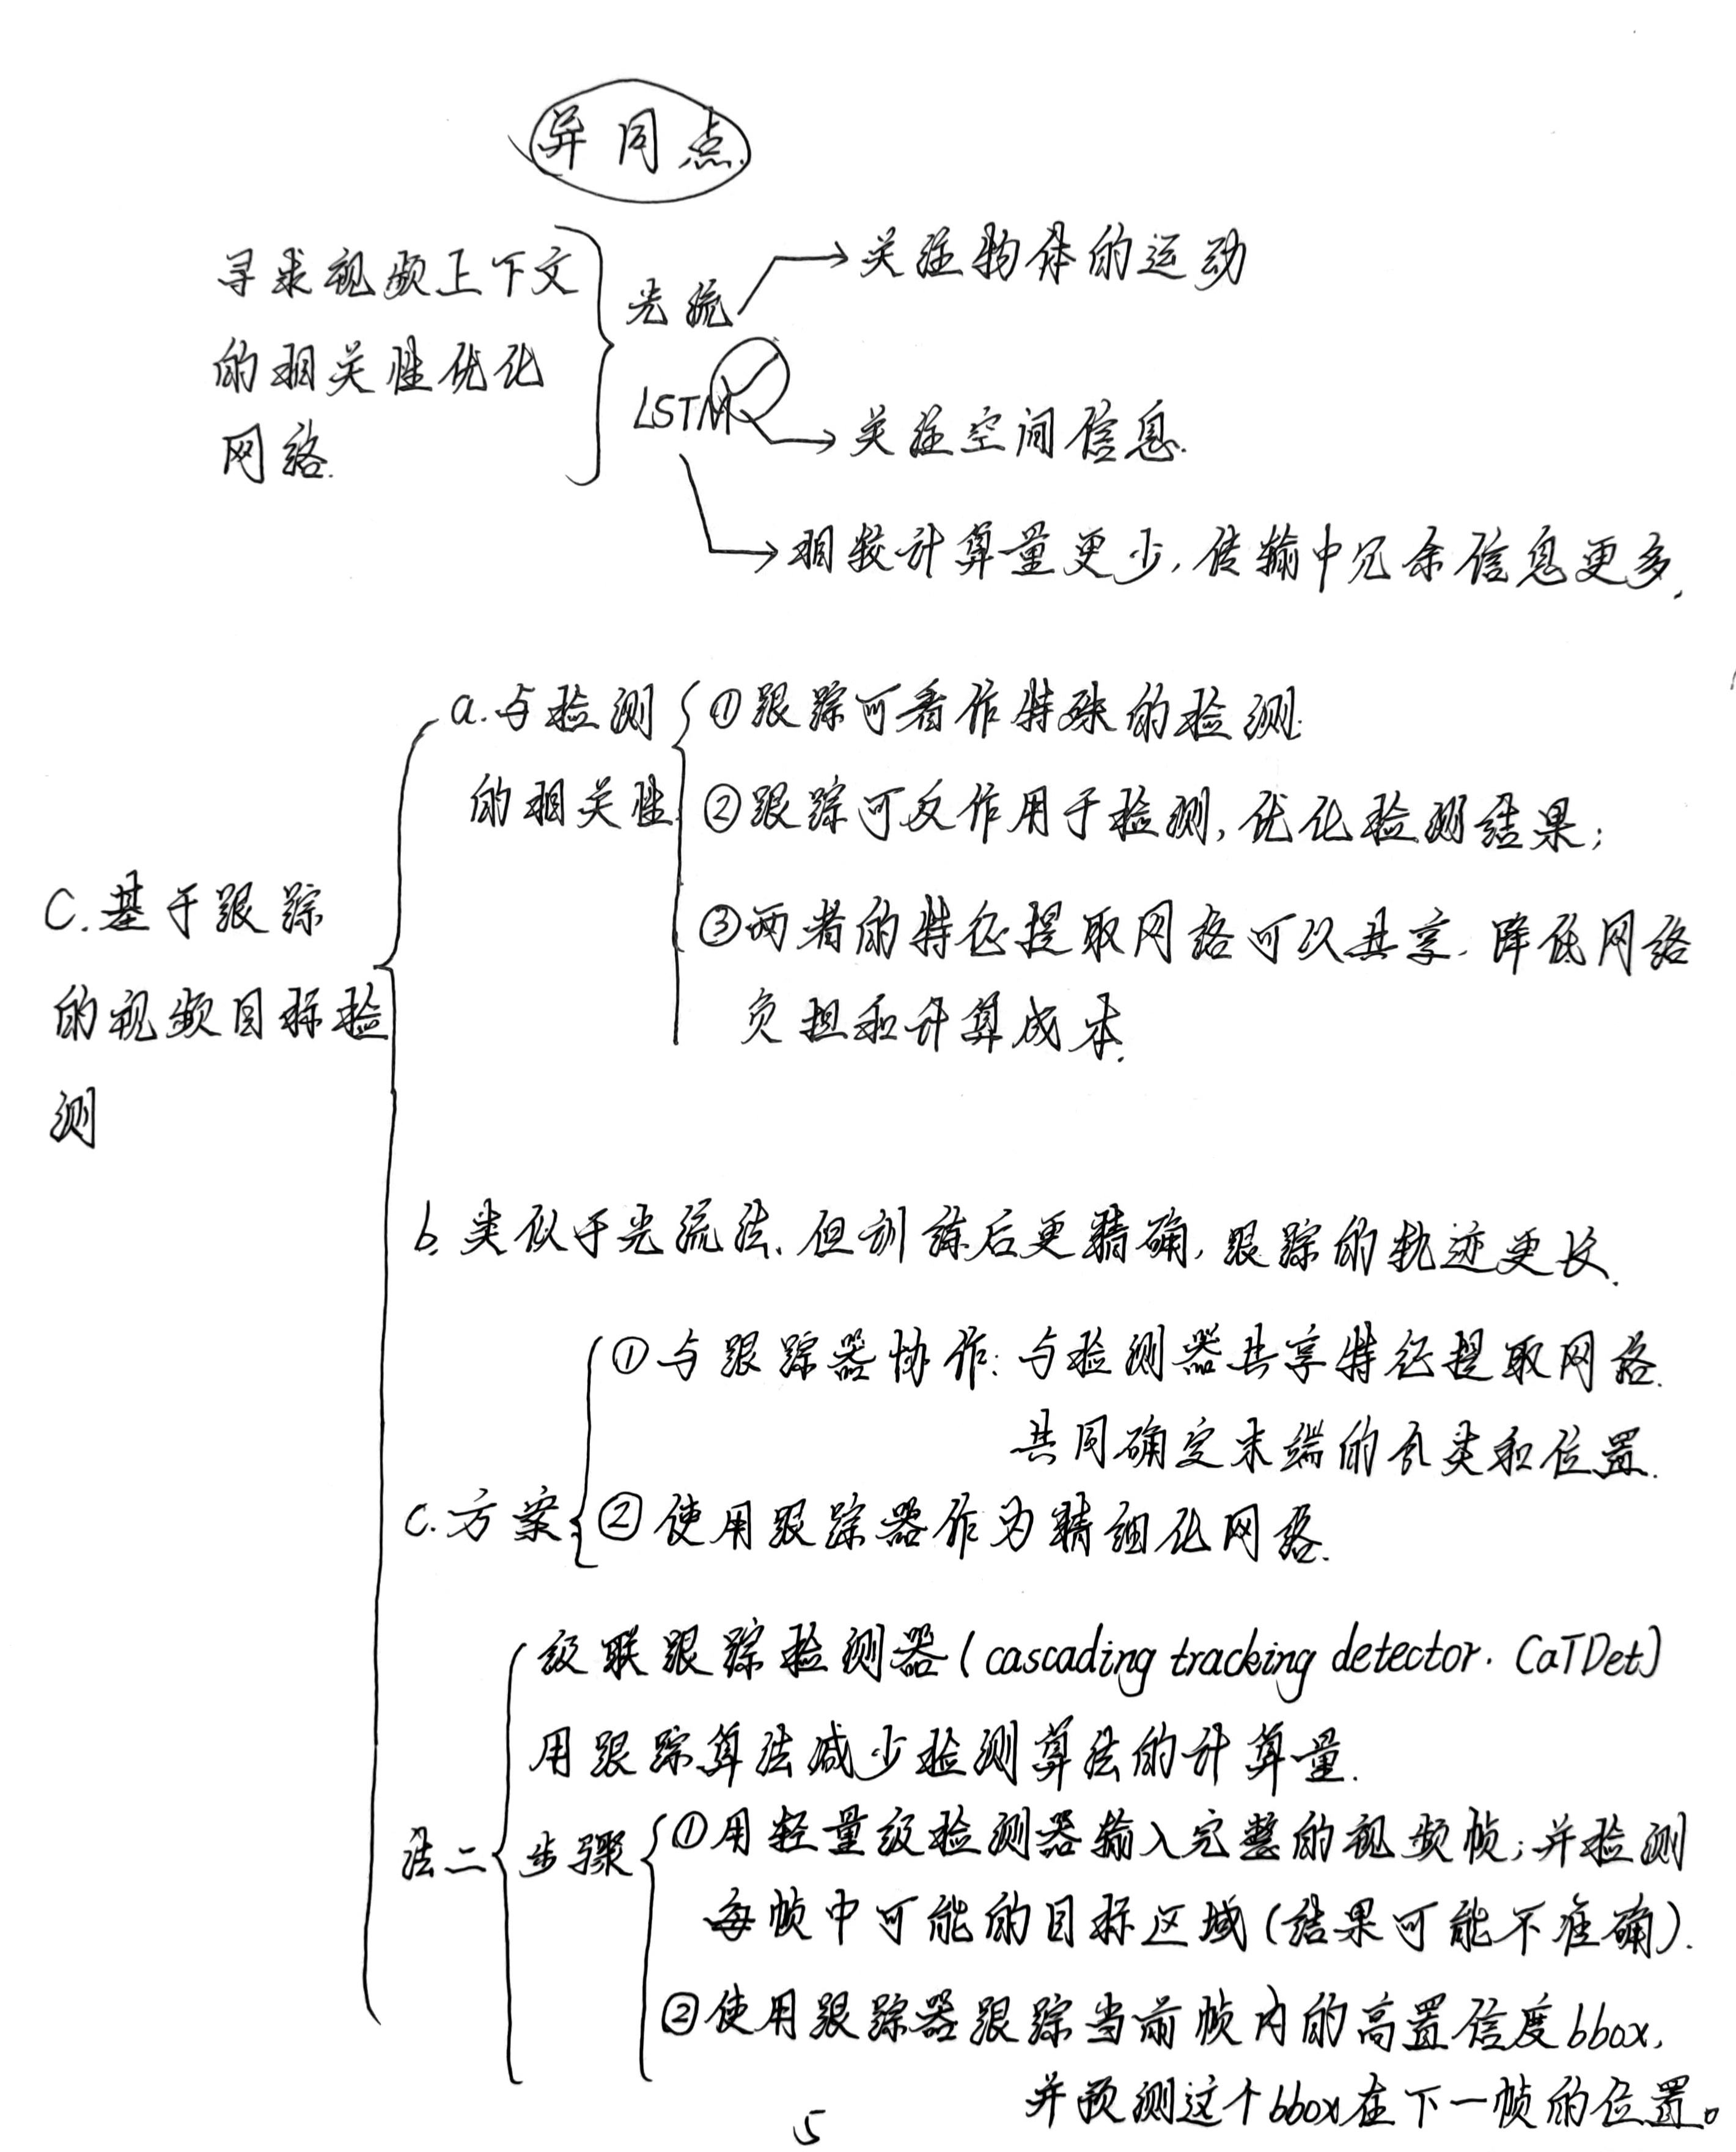 异同点
寻求视频上下文
的相关性优化
网络.
光流
关注物体的运动
LSTM
关注空间信息.
相较计算量更少,传输中冗余信息更多.
C.基于跟踪
的视频目标检
测
a.与检测
的相关性
①跟踪可看作特殊的检测.
②跟踪可反作用于检测,优化检测结果;
③两者的特征提取网络可以共享.降低网络
负担和计算成本.
b.类似于光流法、但训练后更精确,跟踪的轨迹更长.
c.方案
①与跟踪器协作:与检测器共享特征提取网络.
共同确定末端的分类和位置.
②使用跟踪器作为精细化网络.
法二
级联跟踪检测器(cascading tracking detector. CaTDet)
用跟踪算法减少检测算法的计算量.
步骤
①用轻量级检测器输入完整的视频帧;并检测
每帧中可能的目标区域(结果可能不准确).
②使用跟踪器跟踪当前帧内的高置信度bbox,
并预测这个bbox在下一帧的位置。
5